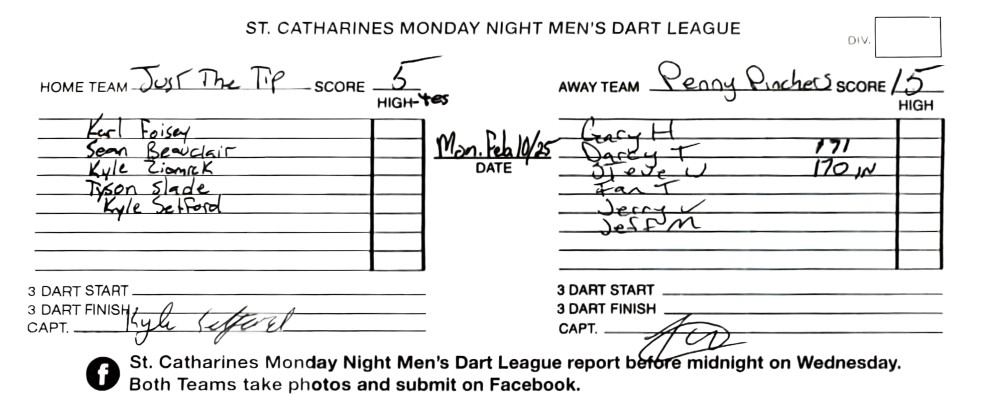 ST. CATHARINES MONDAY NIGHT MEN'S DART LEAGUE
DIV.
HOME TEAM Just The Tip SCORE 5
HIGH-Yes
AWAY TEAM Penny Pinchers SCORE 15
HIGH
Karl Foisey
Sean Beauclair
Kyle Ziomick
Tyson Slade
Kyle Setford
Mon. Feb 10/25
DATE
Gary H
Darcy T 171
Steve W 170 IN
Ian T
Jerry V
Jeff M
3 DART START
3 DART FINISH
CAPT. Kyle Setford
3 DART START
3 DART FINISH
CAPT.
St. Catharines Monday Night Men's Dart League report before midnight on Wednesday.
Both Teams take photos and submit on Facebook.